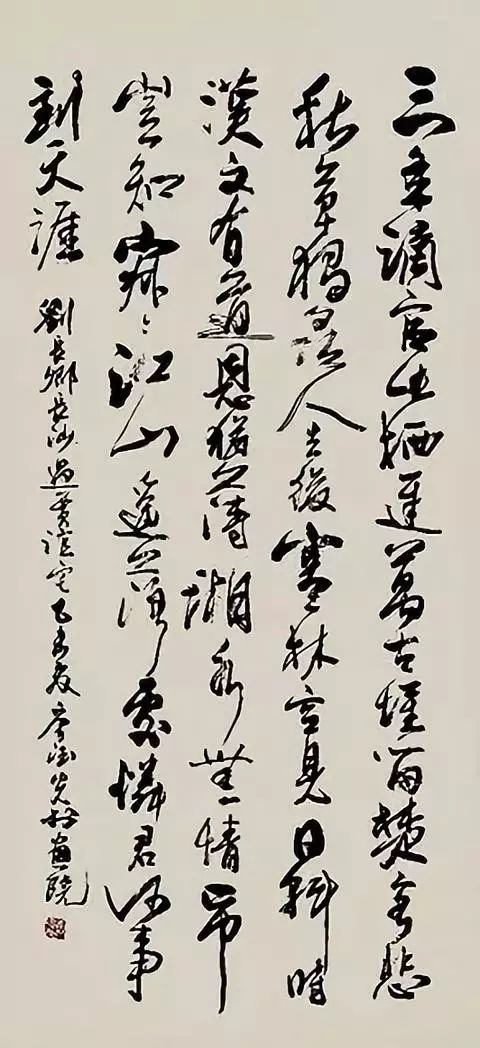 三年謫宦此栖遲萬古惟留楚客悲
秋草獨尋人去後寒林空見日斜時
漢文有道恩猶薄湘水無情吊
豈知寂々江山遙落處憐君何事
到天涯 劉長卿長沙過賈誼宅 乙未夏 李光於畫院